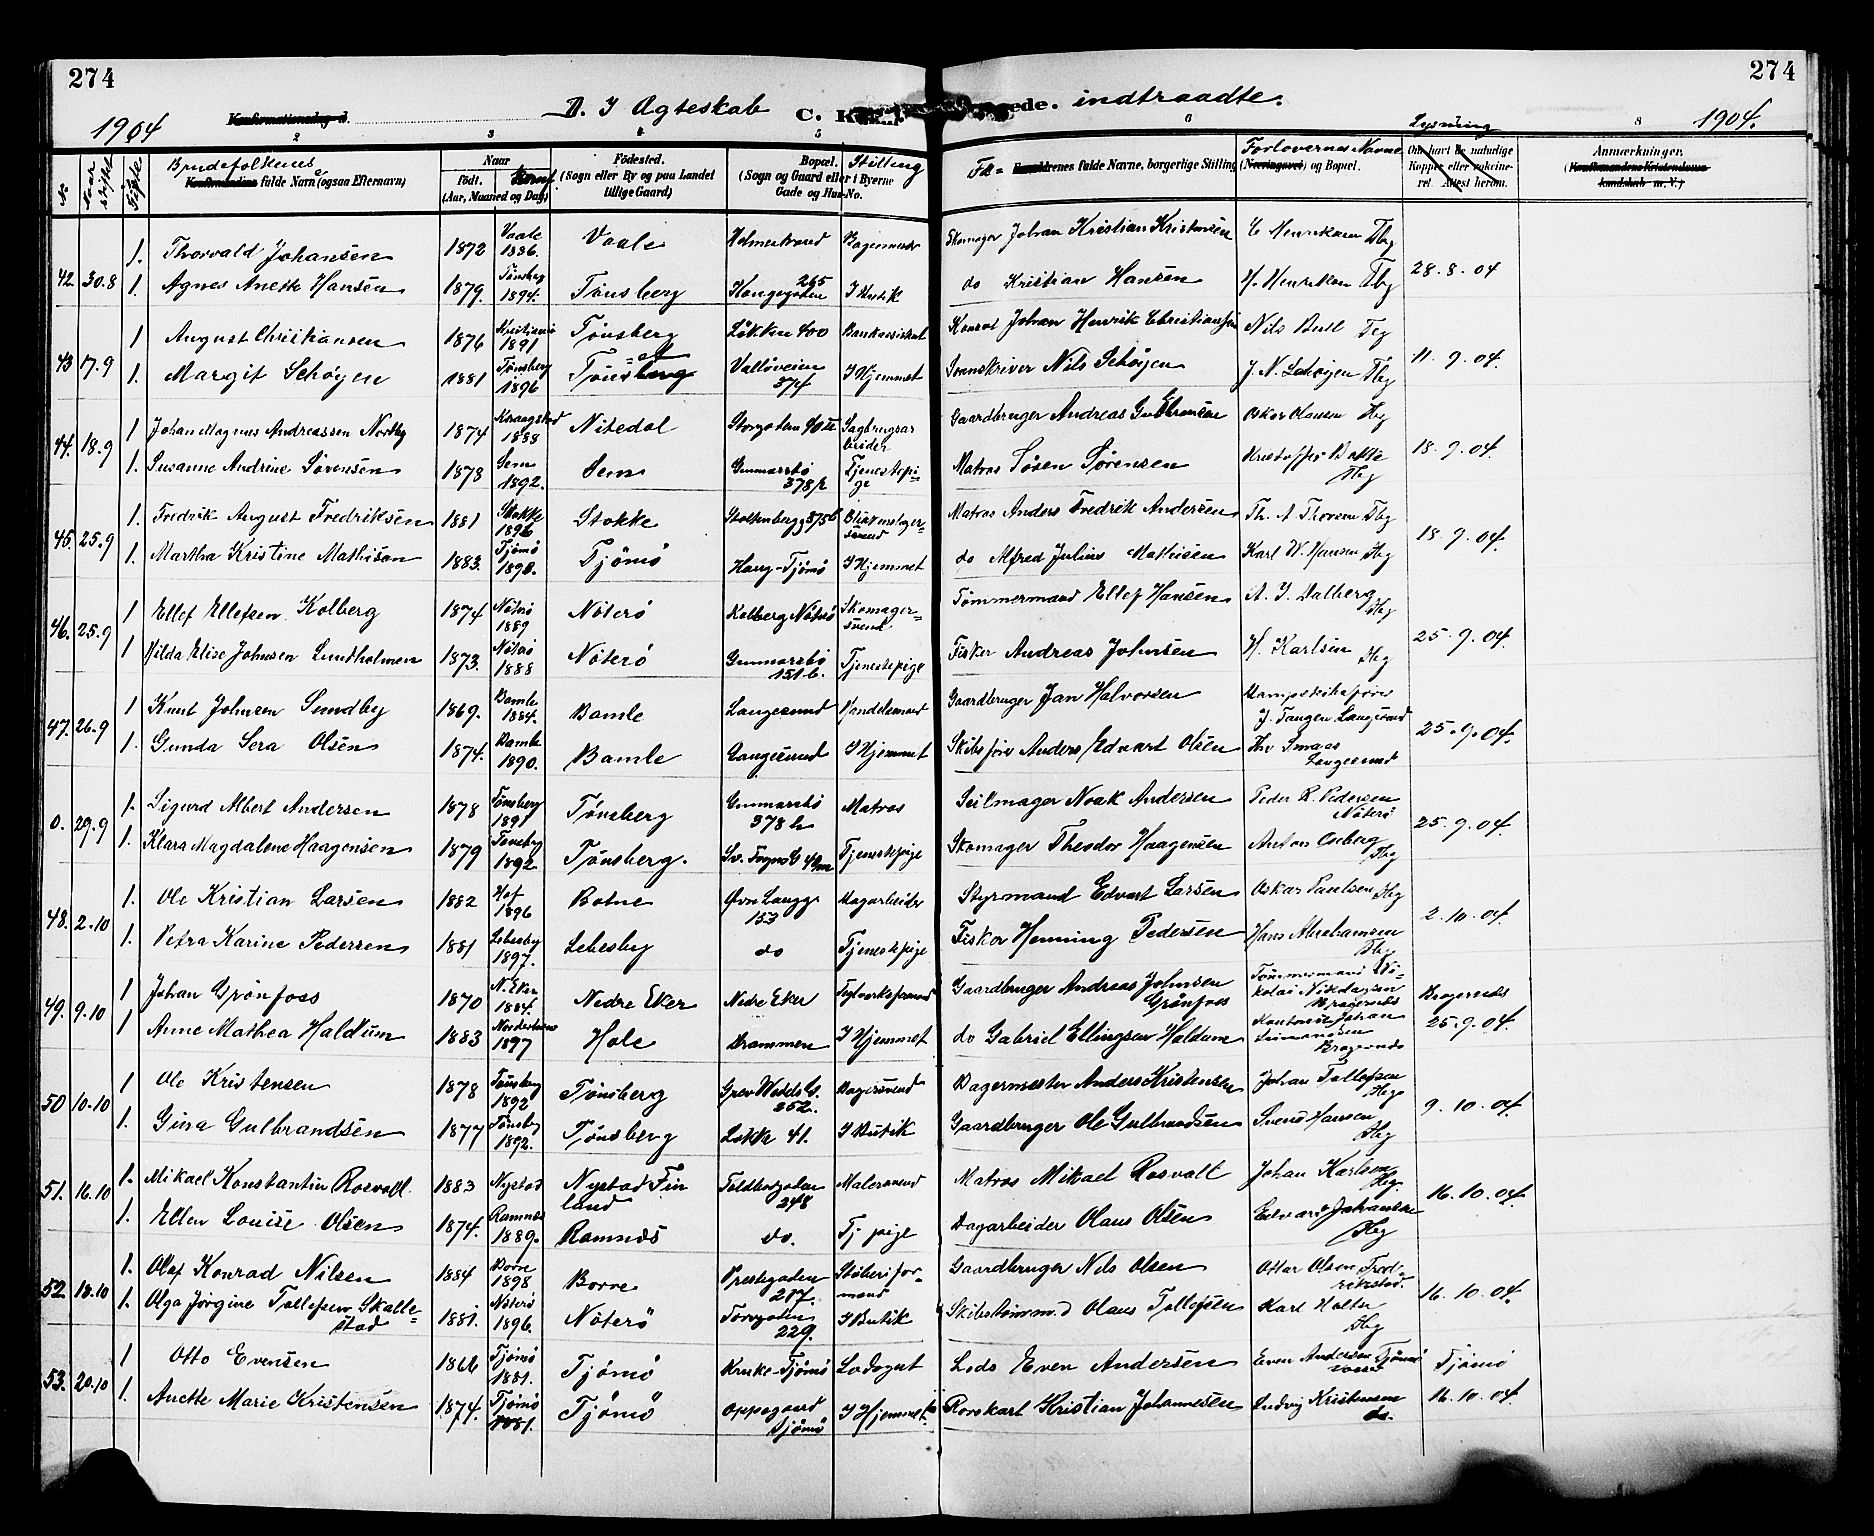 274
274
1904
D. I Ægteskab
C. K
ede. indtraadte.
1904.
Konfirmationsdag d.
2
3
4
5
6
Lysning
8
No.
Brudefolkenes
Konfirmandens fulde Navn (ogsaa Efternavn)
Naar
født.
(Aar, Maaned og Dag)
Fødested.
(Sogn eller By og paa Landet
tillige Gaard)
Bopæl. Stilling
(Sogn og Gaard eller i Byerne
Gade og Hus-No.
Fæ= Forældrenes fulde Navne, borgerlige Stilling (Næringsvei) og Bopæl.
Forlovernes Navne
Om havt de naturlige
Kopper eller vakcine-
ret. Attest herom.
Anmærkninger.
(Konfirmandens Kristendoms-
kundskab m. V.)
1. Thorvald Johansen 1872 Vaale 1886. Vaale Holmestrand Bagermester Skomager Johan Kristian Kristensen C Henriksen Tbg
42 30.8 1. Agnes Anette Hansen 1879. Tønsberg 1894. Tønsberg Kongegaden 265 I Butik do Kristian Hansen H. Henriksen Tbg 28.8.04
1 August Christiansen 1876 Kristiania 1891 Tønsberg Løkken 400 Bankassistent Johan Henrik Christiansen Nils Bull Tbg
43 17.9 1. Margit Schøyen 1881 Tønsberg 1896 Tønsberg Valløveien 374 I Hjemmet Sorenskriver Nils Schøyen J. N. Schøyen Tbg 11.9.04
1 Johan Magnus Andreassen Nordby 1874 Kraagstad 1888 Nitedal Storgaten 90 II Sagbrugsarbeider Gaardbruger Andreas Gulbransen Oskar Olausen Tbg
44. 18.9 1. Susanne Andrine Sørensen 1878 Sem 1892. Sem Gunnarsbø 378 h Tjenestepige Matros Søren Sørensen Kristoffer Bakke Tbg 18.9.04.
1. Fredrik August Fredriksen 1881 Stokke 1896 Stokke Stoltenbergg 375 b Blikkenslagersvend Matros Anders Fredrik Andersen Th. A Thoresen Tbg
45. 25.9 1. Martha Kristine Mathisen 1883. Tjømø 1898. Tjømø Haug-Tjømø I Hjemmet do Alfred Julius Mathisen Karl W. Hansen Tbg 18.9.04.
1 Ellef Ellefsen Kolberg 1874 Nøterø 1889 Nøterø Kolberg Nøterø Skomagersvend Tømmermand Ellef Hansen A. J. Dalberg Tbg
46. 25.9 1 Hilda Elise Johnsen Lindholmen 1873. Nøterø 1888 Nøterø Gunnarsbø 151 b. Tjenestepige Fisker Andreas Johnsen H. Karlsen Tbg 25.9.04.
1 Knut Johnsen Sundby 1869. Bamle 1884. Bamle Langesund Handelsmand Gaardbruger Jan Halvorsen Dampskibsfører J. Tangen Langesund
47. 26.9 1. Gunda Sera Olsen 1874. Bamle 1890. Bamle Langesund I Hjemmet Skibsfører Anders Edvart Olsen Langesund 25.9.04.
1. Sigurd Albert Andersen 1878 Tønsberg 1891 Tønsberg Gunnarsbø 378 h Matros Seilmager Noak Andersen Peder R. Pedersen Nøterø
0. 29.9 1. Klara Magdalene Haagensen 1879 Tønsberg 1892 Tønsberg. Sv. Foyns G Tjenestepige Skomager Theodor Haagensen Anton Oseberg Tbg 25.9.04.
1. Ole Kristian Larsen 1882 Hof 1896 Botne Øvre Langg. 153 Dagarbeider Styrmand Edvart Larsen Oskar Paulsen Tbg
48. 2.10 1. Petra Karine Pedersen 1881 Lebesby 1897. Lebesby do Tjenestepige Fisker Henning Pedersen Hans Abrahamsen Tbg 2.10.04.
1 Johan Grønfoss 1870 N. Eker 1884. Nedre Eker Nedre Eker Teglverksformand Gaardbruger Andreas Johnsen Grønfoss Tømmermand Nikolai Nikolaisen Bragernæs
49. 9.10 1 Anne Mathea Haldum 1883 Norderhov 1897 Hole Drammen I Hjemmet do Gabriel Ellingsen Haldum Kontorist Johan Simonsen Bragernæs Bragernæs 25.9.04.
1 Ole Kristensen 1878 Tønsberg 1892 Tønsberg Grev Wedels G. 252. Bagersvend Bagermester Anders Kristensen Johan Tollefsen Tbg
50 10.10 1. Gina Gulbrandsen 1877 Tønsberg 1892. Tønsberg Løkke 41. I Butik Gaardbruger Ole Gulbrandsen Svend Hansen Tbg 9.10.04.
1. Mikael Konstantin Rosvall 1883 Nystad Nystad Finland Toldbodgaten 248 Malersvend Matros Mikael Rosvall Johan Karlsen Tbg.
51. 16.10 1. Ellen Louise Olsen 1874. Ramnæs 1889. Ramnæs do. Tj. pige Dagarbeider Olaus Olsen Edvard Johansen Tbg 16.10.04.
1. Olaf Konrad Nilsen 1884 Borre 1898 Borre Prestegaden 217. Støberiformand Gaardbruger Nils Olsen Ottar Olsen Fredrikstad.
52. 18.10 1. Olga Jørgine Tollefsen Skallestad 1881. Nøterø 1896. Nøterø Torvgaten 229. I Butik Skibstømmmd Olaus Tollefsen Karl Holter Tbg 16.10.04.
1 Otto Evensen 1866 Tjømø 1881. Tjømø Kruke-Tjømø Lodsgut Lods Even Andersen Even Andersen Tjømø
53. 20.10 1. Anette Marie Kristensen 1874. Tjømø 1881. Tjømø Oppegaard Tjømø I Hjemmet Rorskarl Kristian Johannesen Ludvig Kristensen do. Tjømø 16.10.04.